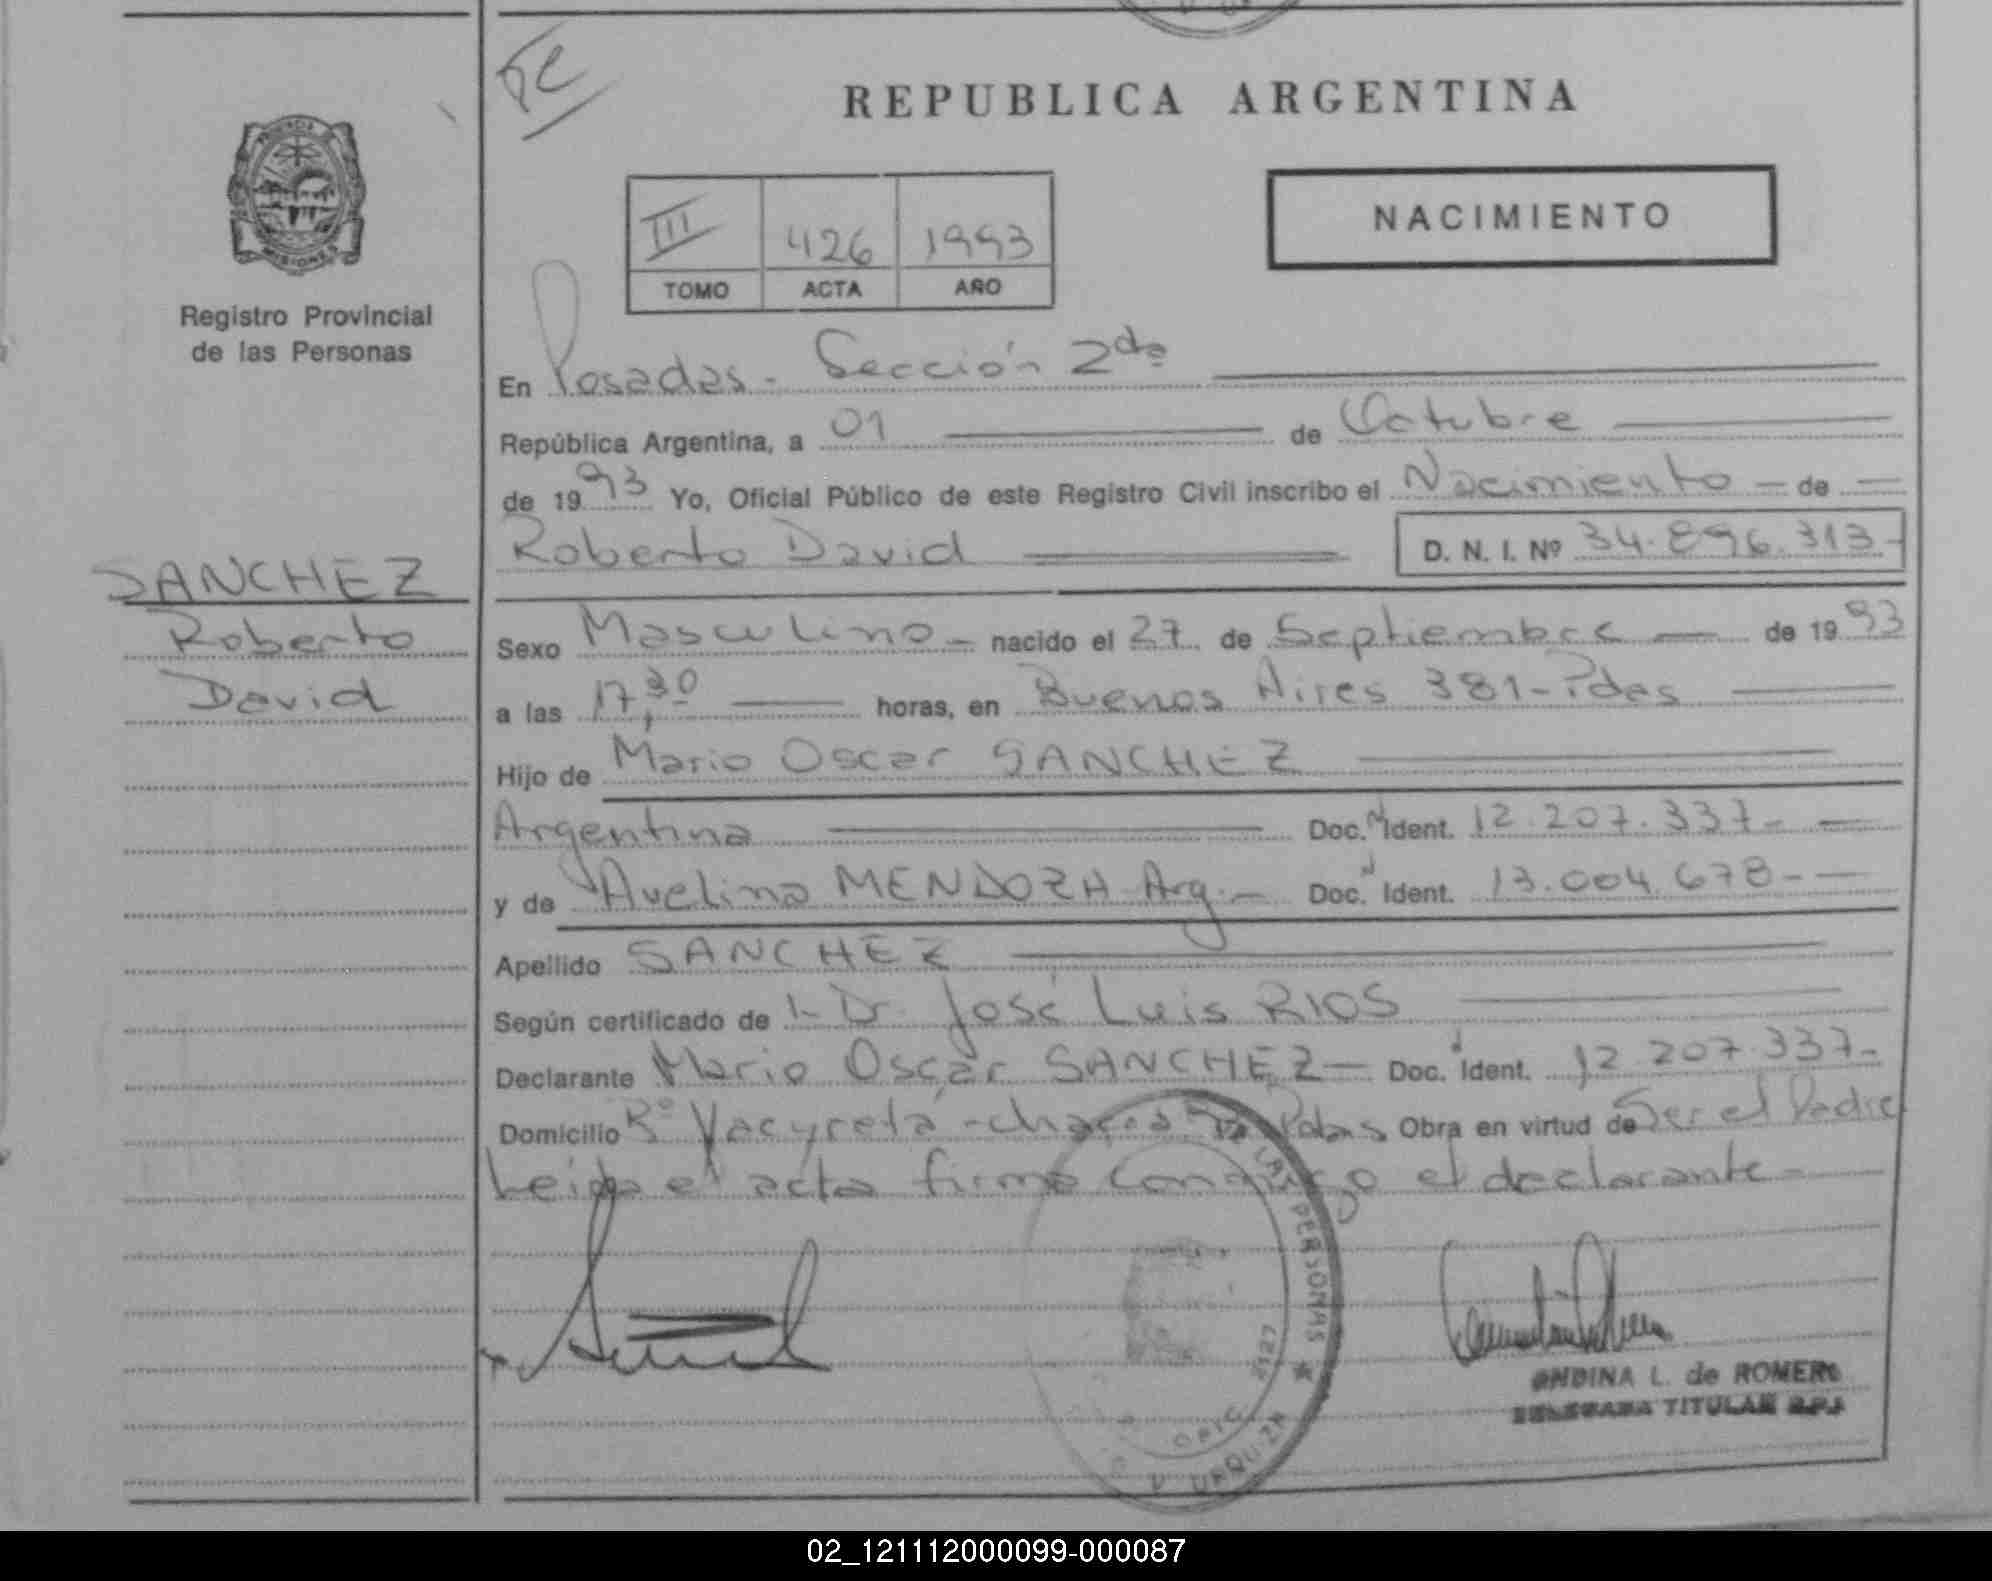 REPUBLICA ARGENTINA
PROVINCIA
MISIONES
Registro Provincial
de las Personas
III 426 1993
TOMO ACTA AÑO
NACIMIENTO
En Posadas - Sección 2da
República Argentina, a 01 de Octubre
de 1993 Yo, Oficial Público de este Registro Civil inscribo el Nacimiento - de -
Roberto David D. N. I. Nº 34.896.313-
SANCHEZ
Roberto
David
Sexo Masculino - nacido el 27 de Septiembre de 1993
a las 17,30 horas, en Buenos Aires 381 - Pdas
Hijo de Mario Oscar SANCHEZ
Argentina Doc. N Ident. 12.207.337-
y de Avelina MENDOZA Arg. - Doc. Ident. 13.004.678-
Apellido SANCHEZ
Según certificado de Dr. José Luis RIOS
Declarante Mario Oscar SANCHEZ - Doc. Ident. 12.207.337-
Domicilio Bº Yacyretá - Obra en virtud de Ser el Padre
Leida el acta firma conmigo el declarante -
LAS PERSONAS ★
OFIC. 2127
V. URQUIZA
ONDINA L. de ROMERO
DELEGADA TITULAR R.P.P.
02_121112000099-000087